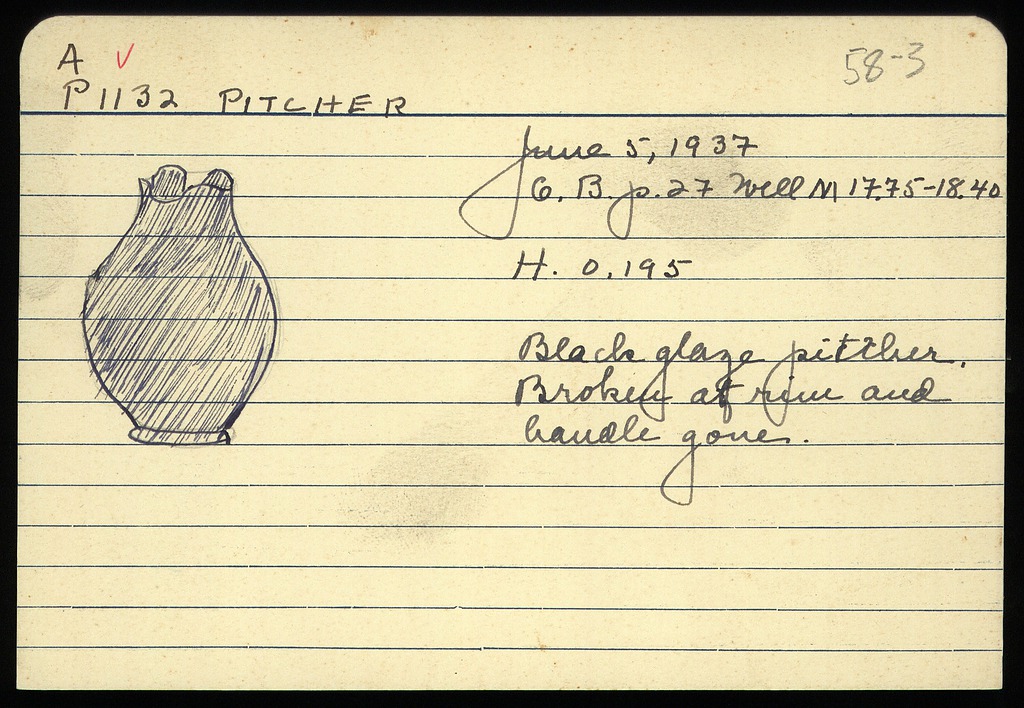 A ✓
58-3
P 1132 PITCHER
June 5, 1937
G. B. p. 27 Well M 17.75-18.40
H. 0.195
Black glaze pitcher.
Broken at rim and
handle gone.